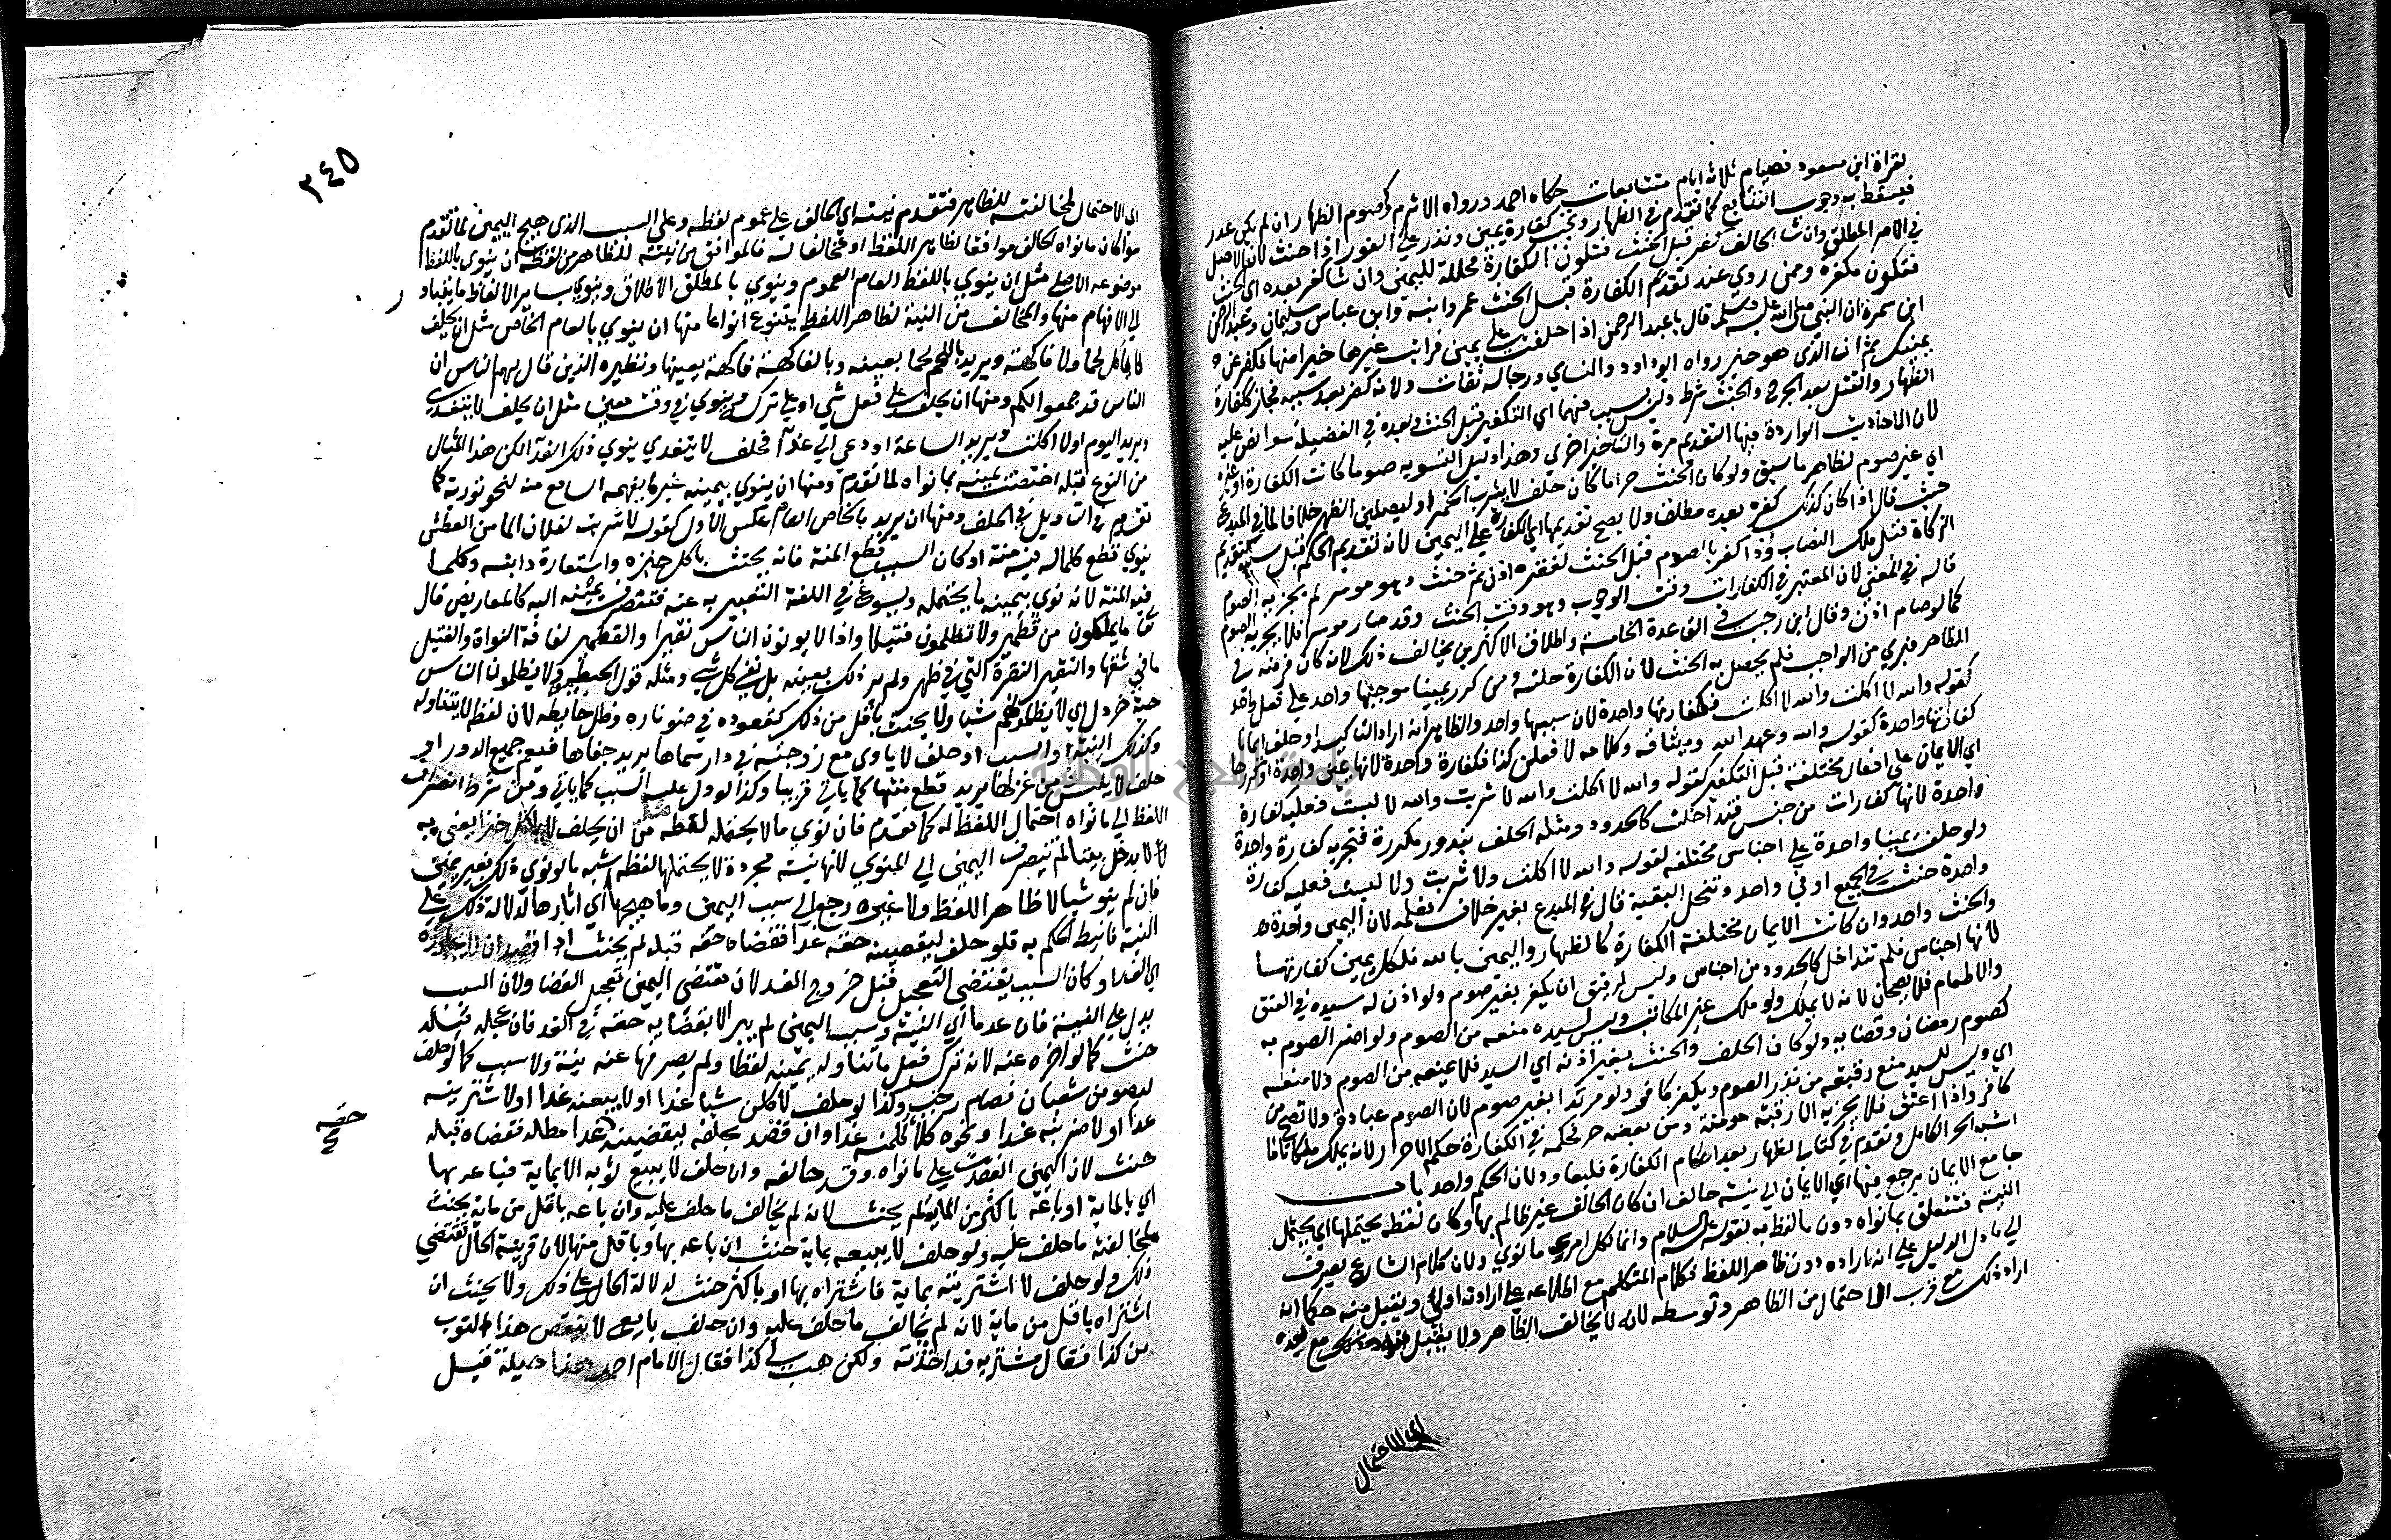 لقراة ابن مسعود فصيام ثلاثة ايام متتابعات حكاه احمد ورواه الاثرم وكصوم الظهار ان لم يكن عذر
فيسقط به وجوب التتابع كما تقدم في الظهار وتجب كفارة يمين ونذر على الفور اذا حنث لانه الاصل
في الامر المطلق وان شا الحالف كفر قبل الحنث فتكون الكفارة محللة لليمين وان شا كفر بعده اي الحنث
فتكون مكفرة وممن روي عنه تقديم الكفارة قبل الحنث عمر وابنه وابن عباس وسلمان وعبد الرحمن
ابن سمرة ان النبي صلى الله عليه وسلم قال يا عبد الرحمن اذا حلفت على يمين فرايت غيرها خيرا منها فكفر عن
يمينك ثم ائت الذي هو خير رواه ابو داود والنساي ورجاله ثقات ولانه كفر بعد سببه فجاز ككفارة
الظهار والقتل بعد الجرح والحنث شرط وليس بسبب فهما اي التكفير قبل الحنث وبعده في الفضيلة سوا نص عليه
لان الاحاديث الواردة فيها التقديم مرة والتاخير اخرى وهذا دليل التسوية صوما كانت الكفارة او غيره
اي غير صوم لظاهر ما سبق ولو كان الحنث حراما كان حلف لا يشرب الخمر او ليصلين الظهر خلافا لما في المبدع
حيث قال اذا كان كذلك كفره بعده مطلقا ولا يصح تقديمها اي الكفارة على اليمين لانه تقديم الحكم قبل سببه كتقديم
الزكاة قبل ملك النصاب واذا كفر بالصوم قبل الحنث لفقره اذن ثم حنث وهو موسر لم يجزيه الصوم
قاله في المغني لان المعتبر في الكفارات وقت الوجوب وهو وقت الحنث وقد صار موسرا فلا يجزيه الصوم
كما لو صام اذن وقال ابن رجب في القاعدة الخامسة واطلاق الاكثرين يخالف ذلك لانه كان فرضه في
الظاهر فبري من الواجب فلم يحصل به الحنث لان الكفارة حلته ومن كرر يمينا موجبها واحد على فعل واحد
كقوله والله لا اكلت والله لا اكلت فكفارتها واحدة لان سببها واحد والظاهر انه اراد التاكيد او حلف ايمانا
كفارتها واحدة كقوله والله وعهد الله وميثاقه وكلامه لا فعلن كذا فكفارة واحدة لانها يمين واحدة او كررها
اي الايمان على افعال مختلفة قبل التكفير كقوله والله لا اكلت والله لا شربت والله لا لبست فعليه كفارة
واحدة لانها كفارات من جنس فتداخلت كالحدود ومثله الحلف بنذور مكررة فتجزيه كفارة واحدة
ولو حلف يمينا واحدة على اجناس مختلفة لقوله والله لا اكلت ولا شربت ولا لبست فعليه كفارة
واحدة حنث في الجميع او في واحد وتنحل البقية قال في المبدع بغير خلاف نعلمه لان اليمين واحدة
والحنث واحد وان كانت الايمان مختلفة الكفارة كالظهار واليمين بالله فلكل يمين كفارتها
لانها اجناس فلم تتداخل كالحدود من اجناس وليس لرقيق ان يكفر بغير صوم ولو اذن له سيده في العتق
والاطعام فلا يصحان لانه لا يملك ولو ملك غير المكاتب وليس لسيده منعه من الصوم ولو اضر الصوم به
كصوم رمضان وقضايه ولو كان الحلف والحنث بغير اذنه اي السيد فلا يمنعه من الصوم ولا منعه
اي وليس للسيد منع رقيقه من نذر الصوم ويكفر كافر ولو مرتدا بغير صوم لان الصوم عبادة ولا تصح من
كافر واذا اعتق فلا يجزيه الا رقبة مومنة ومن بعضه حر فحكمه في الكفارة حكم الاحرار لانه يملك ملكا تاما
اشبه الحر الكامل وتقدم في كتاب الظهار بعد احكام الكفارة فليعاود لان الحكم واحد باب
جامع الايمان يرجع فيها اي الايمان الى نية حالف ان كان الحالف غير ظالم بها وكان لفظه يحتملها اي يحتمل
النية فتتعلق بما نواه دون ما لفظ به لقوله عليه السلام وانما لكل امرئ ما نوى ولان كلام الشارع يصرف
الى ما دل الدليل على انه اراده دون ظاهر اللفظ فكلام المتكلم مع اطلاعه على ارادته اولى ويقبل منه حكما انه
اراد ذلك مع قرب الاحتمال من الظاهر وتوسطه لانه لا يخالف الظاهر ولا يقبل مع بعده
اي الاحتمال
٣٤٥
اي الاحتمال لمخالفته للظاهر فتقدم نيته اي الحالف على عموم لفظه وعلى السبب الذي هيج اليمين لما تقدم
سوا كان ما نواه الحالف موافقا لظاهر اللفظ او مخالفا له فالموافق من نيته للظاهر من لفظه ان ينوي باللفظ
موضوعه الاصلي مثل ان ينوي باللفظ العام العموم وينوي بالمطلق الاطلاق وينوي بساير الالفاظ ما يتبادر
الى الافهام منها والمخالف من النية لظاهر اللفظ يتنوع انواعا منها ان ينوي بالعام الخاص مثل ان يحلف
لا ياكل لحما ولا فاكهة ويريد باللحم لحما بعينه وبالفاكهة فاكهة بعينها ونظيره الذين قال لهم الناس ان
الناس قد جمعوا لكم ومنها ان يحلف على فعل شي او على تركه وينوي في وقت معين مثل ان يحلف لا يتغدى
ويريد اليوم او لا اكلت ويريد الساعة او دعي الى غدا فحلف لا يتغدى ينوي ذلك الغدا لكن هذا المثال
من النوع قبله اختصت يمينه بما نواه لما تقدم ومنها ان ينوي بيمينه غير ما يفهمه السامع منه لنحو تورية كما
تقدم في التاويل في الحلف ومنها ان يريد بالخاص العام عكس الاول كقوله لا شربت لفلان الما من العطش
ينوي قطع كل ماله فيه منة او كان السبب قطع المنة فانه يحنث باكل خبزه واستعارة دابته وكلما
فيه المنة لانه نوى بيمينه ما يحتمله ويسوغ في اللغة التعبير به عنه فتنصرف يمينه اليه كالمعاريض قال
تع ما يملكون من قطمير ولا تظلمون فتيلا واذا لا يوتون الناس نقيرا والقطمير لفافة النواة والفتيل
ما في شقها والنقير النقرة التي في ظهر ولم يرد ذلك بعينه بل نفي كل شي ومثله قول الحطيئة ولا يظلمون الناس
حبة خردل اي لا يظلمونهم شيا ولا يحنث باقل من ذلك كقعوده في ضو ناره وظل حايطه لان لفظه لا يتناوله
وكذلك النية والسبب او حلف لا ياوي مع زوجته في دار سماها يريد جفاها فيعم جميع الدور او
حلف لا يلبس من غزلها يريد قطع منتها كما ياتي قريبا وكذا لو دل عليه السبب كما ياتي ومن شرط انصراف
اللفظ الى ما نواه احتمال اللفظ له كما تقدم فان نوى ما لا يحتمله لفظه مثل ان يحلف لا ياكل خبزا يعني به
لا يدخل بيتا لم تنصرف اليمين الى المنوي لانها نية مجردة لا يحتملها لفظه اشبه ما لو نوى ذلك بغير يمين
فان لم ينو شيا لا ظاهر اللفظ ولا غيره رجع الى سبب اليمين وما هيجها اي اثارها لدلالة ذلك على
النية فانيط الحكم به فلو حلف ليقضينه حقه غدا فقضاه حقه قبله لم يحنث اذا قصد ان لا يجاوزه
اي الغد او كان السبب يقتضي التعجيل قبل خروج الغد لان مقتضى اليمين تعجيل القضا ولان السبب
يدل على النية فان عدما اي النية وسبب اليمين لم يبر الا بقضايه حقه في الغد فان عجله قبله
حنث كما لو اخره عنه لانه ترك فعل ما تناوله يمينه لفظا ولم يصرفها عنه نية ولا سبب كما لو حلف
ليصومن شعبان فصام رجب وكذا لو حلف لاكلن شيا غدا او لابيعنه غدا او لاشترينه
غدا او لاضربنه غدا ونحوه كلاكلمنه غدا وان قصد بحلفه ليقضينه غدا مطاله فقضاه قبله
حقه صح
حنث لان اليمين انعقدت على ما نواه وقد خالفه وان حلف لا يبيع ثوبه الا بماية فباعه بها
اي بالماية او باعه باكثر من الماية لم يحنث لانه لم يخالف ما حلف عليه وان باعه باقل من ماية يحنث
لمخالفته ما حلف عليه ولو حلف لا يبيعه بماية حنث ان باعه بها او باقل منها لان قرينة الحال تقتضي
ذلك ولو حلف لا اشتريته بماية فاشتراه بها او باكثر حنث لدلالة الحال على ذلك ولا يحنث ان
اشتراه باقل من ماية لانه لم يخالف ما حلف عليه وان حلف بايع لا ينقص هذا الثوب
من كذا فقال مشتريه قد اخذته ولكن هب لي كذا فقال الامام احمد هذا حيلة قيل